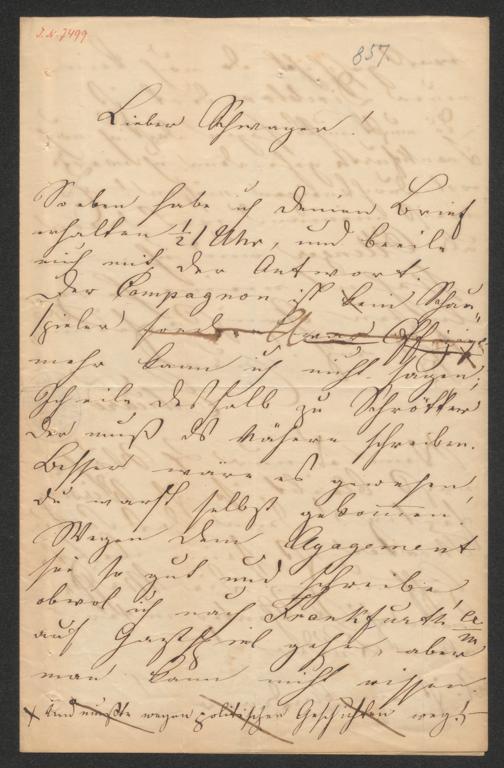 J.N. 7499
857
Lieber Schwager!
So eben habe ich deinen Brief
erhalten ½ 1 Uhr, und beeile
mich mit der Antwort.
Der Compagnon ist kein Schau-
spieler
mehr kann ich nicht sagen,
Ich eile deshalb zu Schrötter
der muß das Nähere schreiben.
Besser wäre es gewesen
du warst selbst gekommen!
Wegen dem Engagement
sei so gut und schreibe
obwol ich nach Frankfurth a/m
auf Gastspiel gehe, aber
man kann nicht wissen.
x und mußte wegen politischen Geschichten weg!